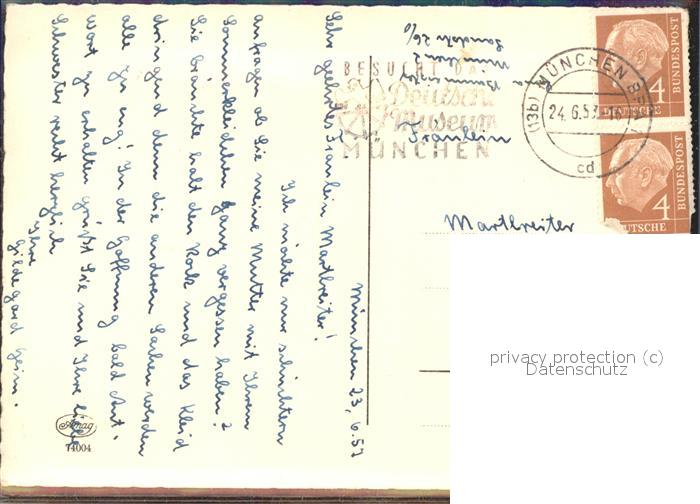 München 23.6.57
Sehr geehrtes Fräulein Martlreiter!
Ich möchte nur schüchtern
anfragen ob Sie meine Mutter mit Ihrem
Sommerkleidchen ganz vergessen haben?
Sie bräuchte halt den Rock und das Kleid
dringend denn die anderen Sachen werden
alle zu eng! In der Hoffnung bald Ant-
wort zu erhalten grüßt Sie und Ihre liebe
Schwester recht herzlich
Ihre
Hildegard Heim.
München 2
Landstr 26/0
BESUCHT DAS
Deutsche
Museum
MÜNCHEN
(13b) MÜNCHEN
24.6.53
cd
4
BUNDESPOST
DEUTSCHE
4
BUNDESPOST
DEUTSCHE
Fräulein
Martlreiter
privacy protection (c)
Datenschutz
Amag
74004